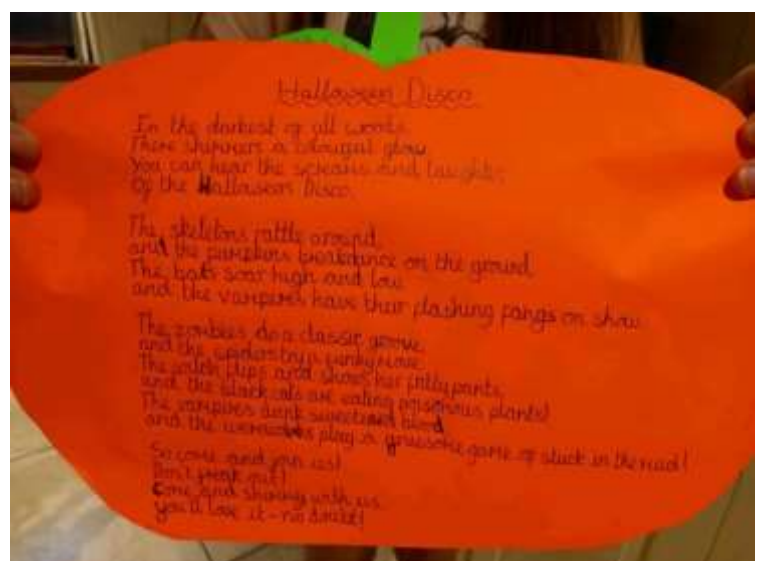 Halloween Disco
In the darkest of all woods
There shimmers a glow
You can hear the screams and laughter
Of the Halloween Disco.
The skeletons rattle around,
and the pumpkins breakdance on the ground
The bats soar high and low
and the vampires have their flashing pangs on show.
The zombies do a classic groove
and the spiders funky move
The witch flips and shows her frilly pants
and the black cats are eating poisonous plants!
The vampires drink sweetened blood
and the werewolves play a gruesome game of stuck in the mud!
So come and join us!
Don't freak out!
Come and shimmy with us
you'll love it - no doubt!